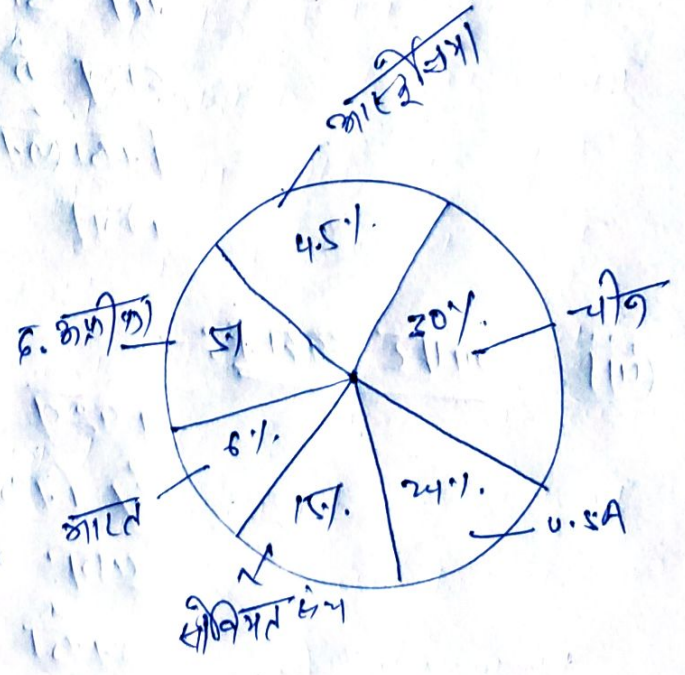 आस्ट्रेलिया
4.5%
30%
चीन
द. अफ्रीका
5%
6%
भारत
15%
24%
U.SA
सोवियत संघ